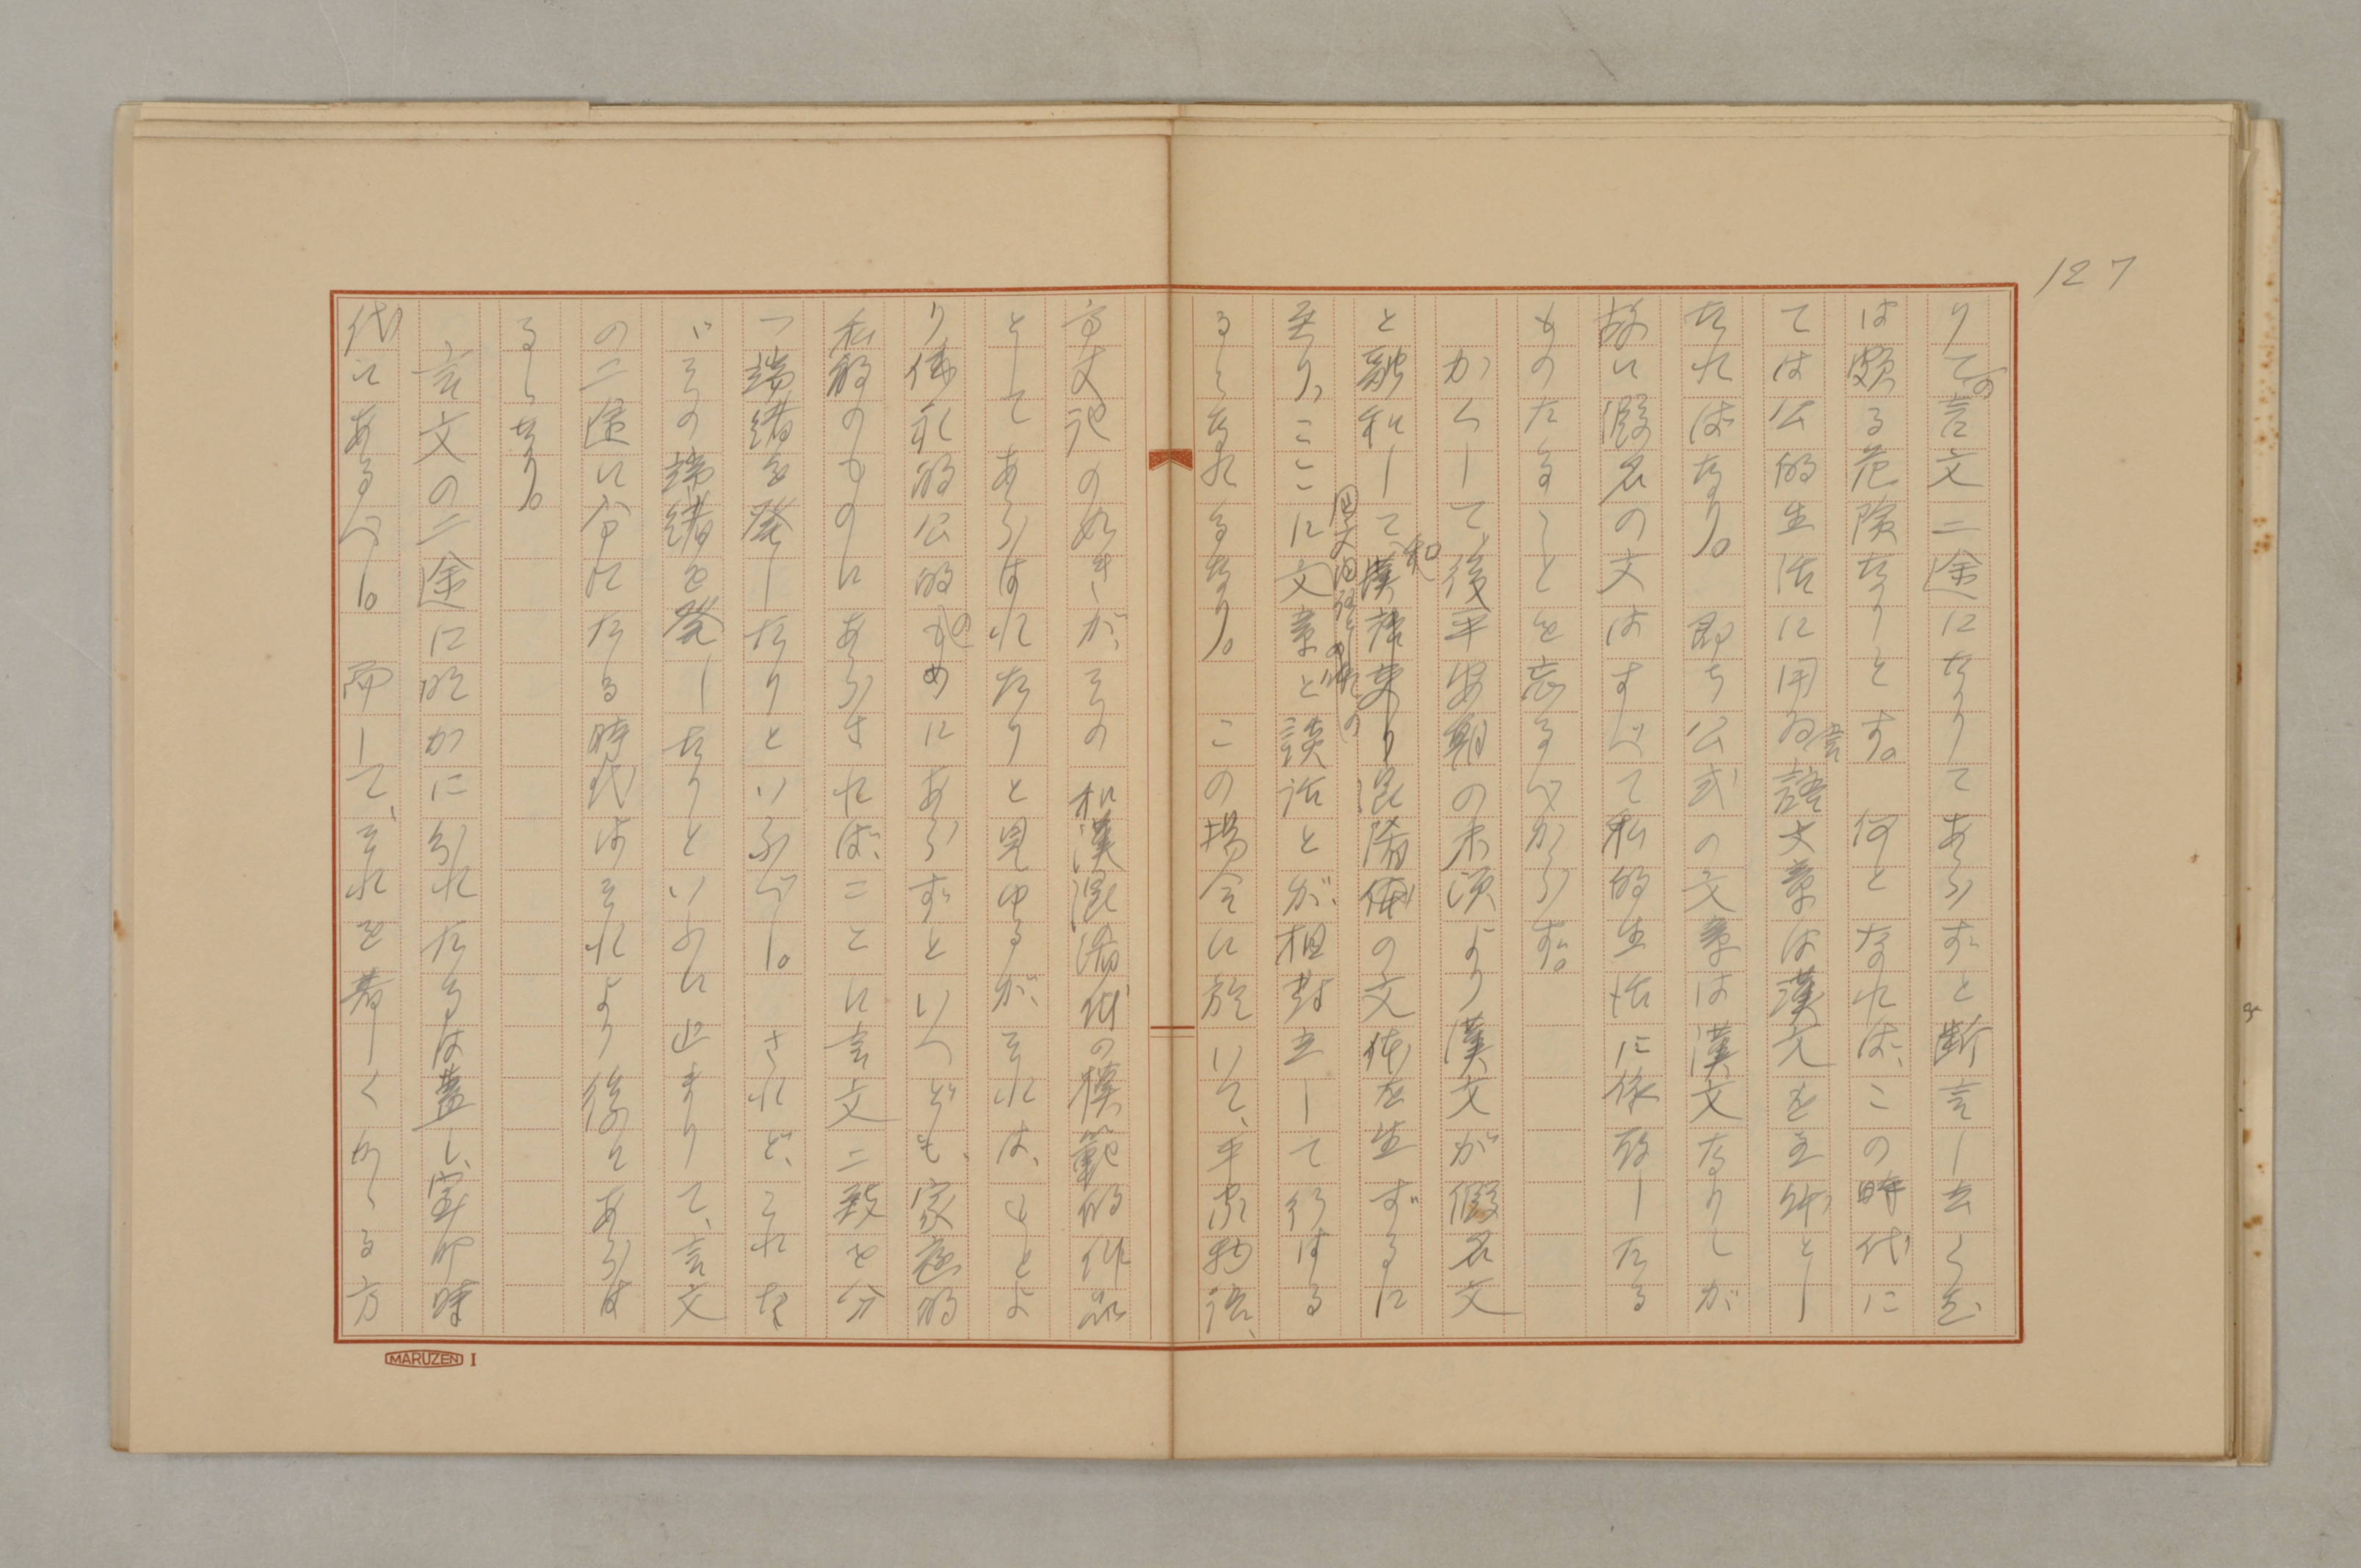 127
りての言文二途になりてあらずと断言し去るは、
は頗る危険なりとす。何となれば、この時代に
ては公的生活に用ゐ言語文章は漢文を主体とし
たればなり。即ち公式の文章は漢文なりしが
故に假名の文はすべて私的生活に係致したる
ものたることを忘るべからず。
かくして、後平安朝の末頃より漢文が假名文
と融和して、和漢混淆体の文体を生ずるに
至り、ここに文章と談話とが、相対立して行はる
るゝなれるなり。この場合に於いて、平家物語、
方丈記の如きが、その和漢混淆体の模範的作品
としてあらはれたりと見ゆるが、それは、もとよ
り儀礼的公的のものにあらずといへども、家庭的
私的のものにあらざれば、ことに言文二致を分
つ端緒を発したりといふべし。されど、これた
ゞその端緒を発したりといふに止まりて、言文
の二途に分れたる時代はそれより後にあらは
るゝなり。
言文の二途に明かに分れたるは蓋し、室町時
代にあるべし。而して、それを著しくかゝる方
MARUZEN I